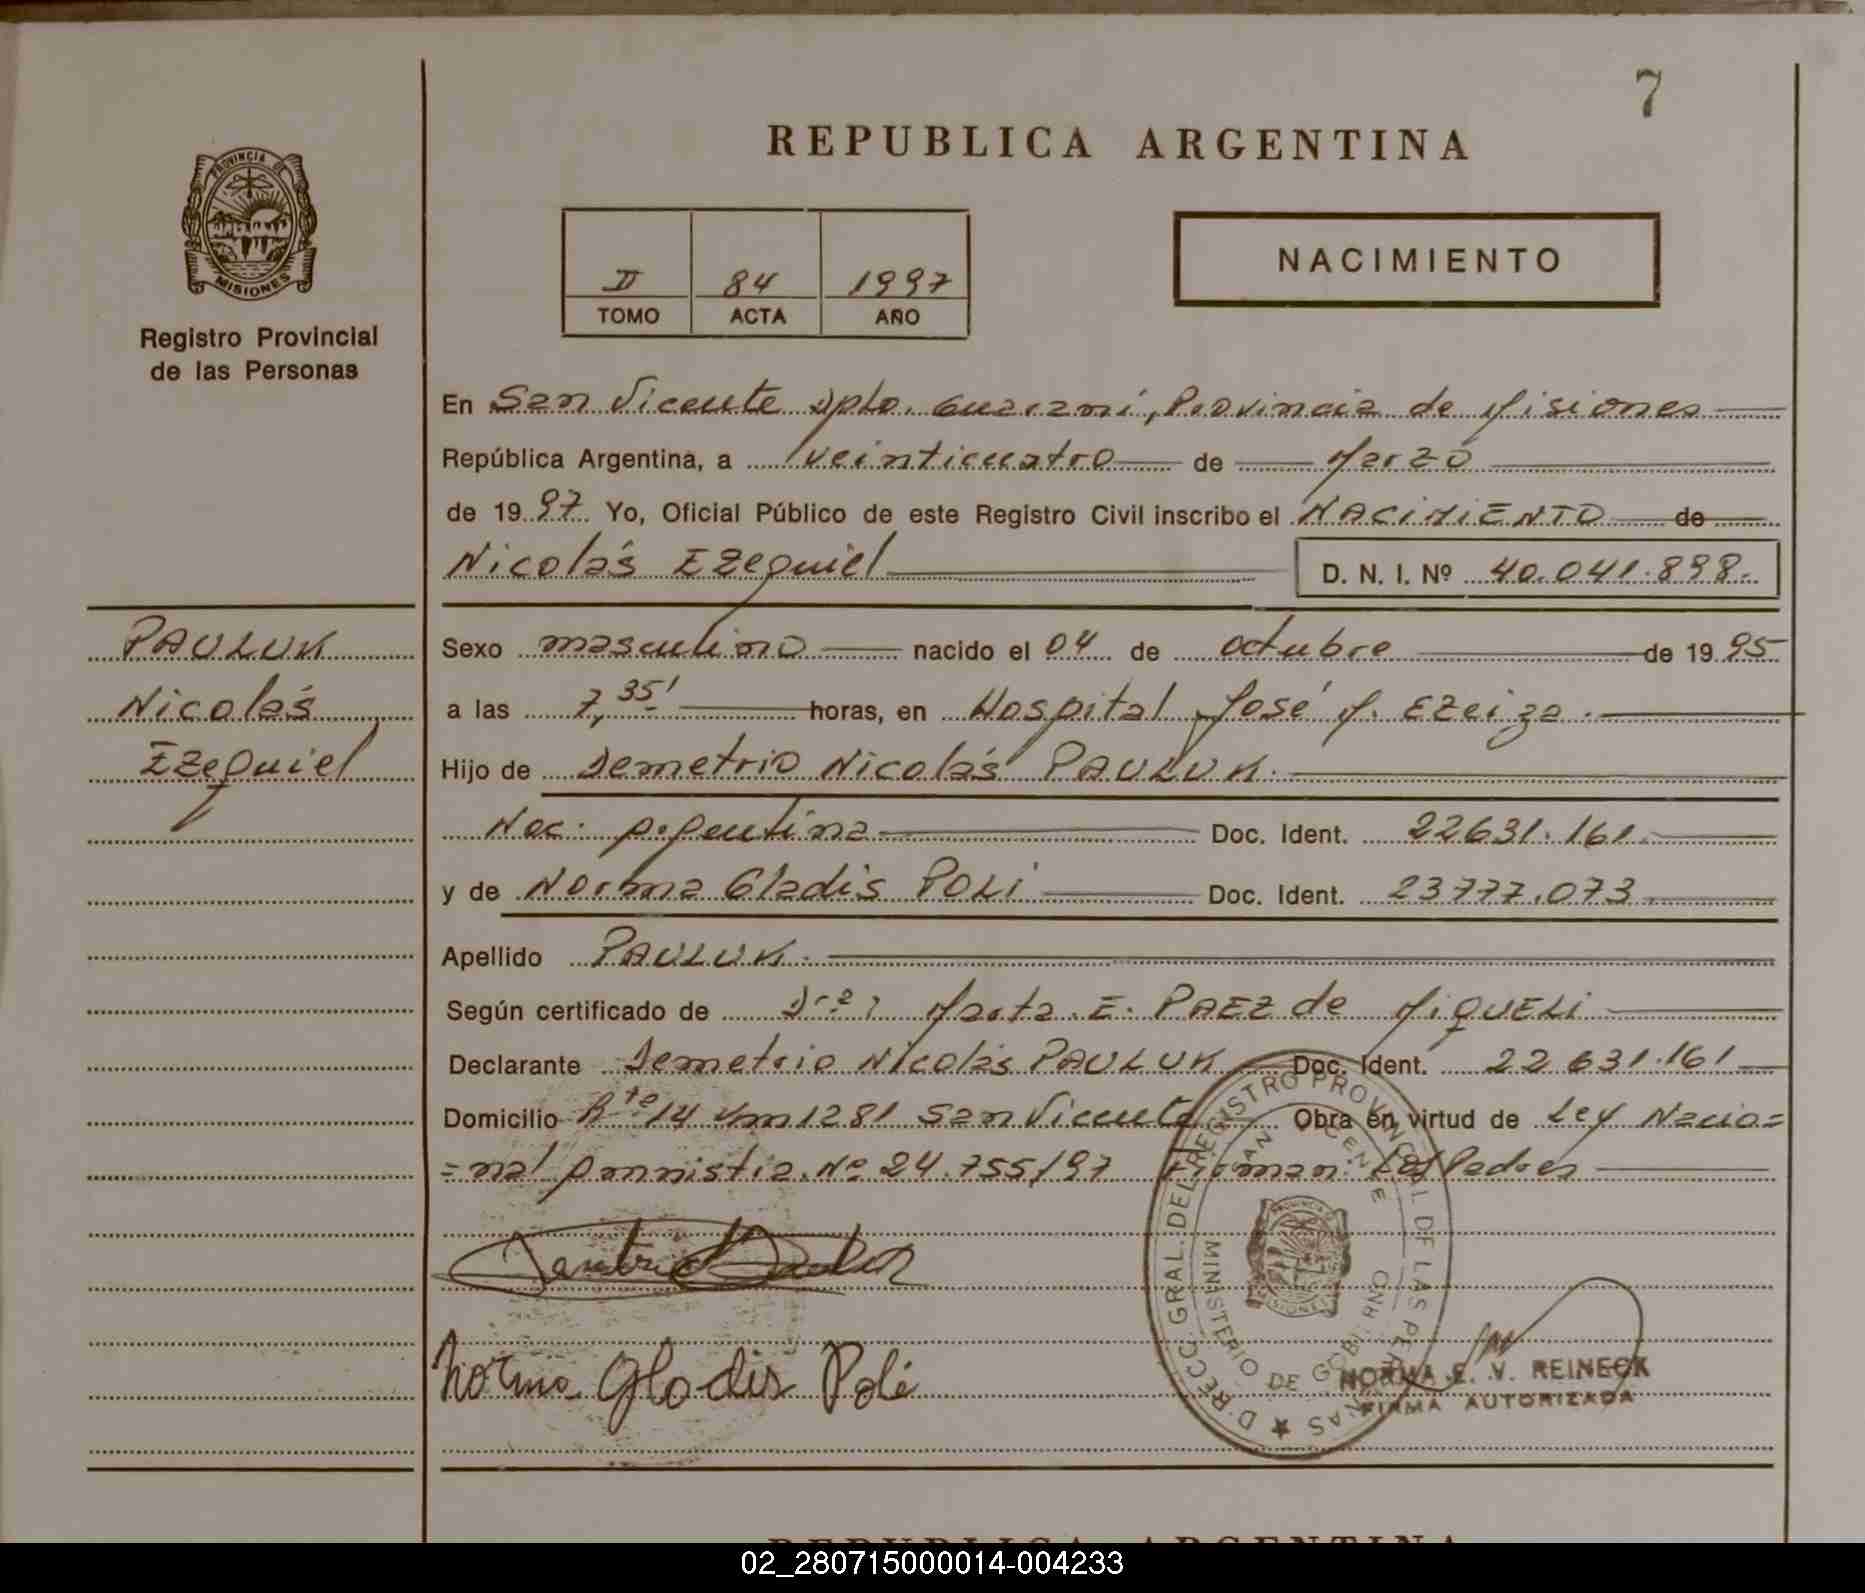 7
REPUBLICA ARGENTINA
PROVINCIA DE MISIONES
Registro Provincial
de las Personas
II 84 1997
TOMO ACTA AÑO
NACIMIENTO
En San Vicente Dpto. Guaraní, Provincia de Misiones
República Argentina, a veinticuatro de Marzo
de 1997 Yo, Oficial Público de este Registro Civil inscribo el NACIMIENTO de
Nicolás Ezequiel D. N. I. Nº 40.041.898.
PAULUK
Nicolás
Ezequiel
Sexo masculino nacido el 04 de octubre de 1995
a las 7,35' horas, en Hospital José M. Ezeiza.
Hijo de Demetrio Nicolás PAULUK.
Nac. Argentina Doc. Ident. 22631.161.
y de Norma Gladis POLI Doc. Ident. 23777.073
Apellido PAULUK.
Según certificado de Dra: Marta E. PAEZ de MiQUELi
Declarante Demetrio Nicolás PAULUK Doc. Ident. 22 631.161
Domicilio Rta 14 Km 1281 San Vicente Obra en virtud de Ley Nacio=
=nal Amnistia Nº 24.755/97 Firman: Los Padres
Norma Gladis Poli
DIRECC. GRAL. DEL REGISTRO PROVINCIAL DE LAS PERSONAS
SAN VICENTE
MINISTERIO DE GOBIERNO
NORMA E. V. REINECK
FIRMA AUTORIZADA
REPUBLICA ARGENTINA
02_280715000014-004233